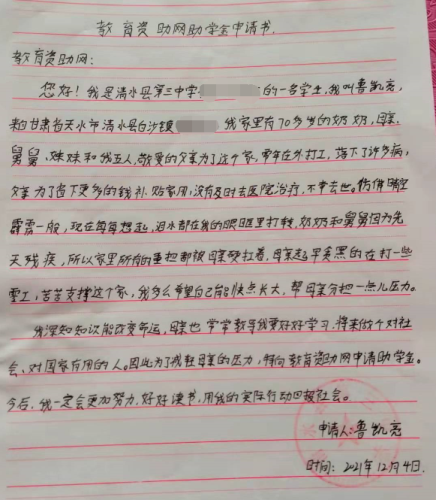 教育资助网助学金申请书.
教育资助网:
您好!我是清水县第三中学,的一名学生,我叫鲁凯亮,
来自甘肃省天水市清水县白沙镇 我家里有70多岁的奶奶,母亲.
舅舅、妹妹和我五人,敬爱的父亲为了这个家,常年在外打工,落下了许多病,
父亲为了省下更多的钱补贴家用,没有及时去医院治疗,不幸去世。仿佛晴空
霹雳一般,现在每每想起,泪水都在我的眼眶里打转,奶奶和舅舅因为先
天残疾,所以家里所有的重担都被母亲硬扛着,母亲起早贪黑的在打一些
零工,苦苦支撑这个家,我多么希望自己能快点长大,帮母亲分担一点儿压力。
我深知知识能改变命运,母亲也常常教导我要好好学习,将来做个对社
会、对国家有用的人。因此为了减轻母亲的压力,特向教育资助网申请助学金。
今后,我一定会更加努力,好好读书,用我的实际行动回报社会。
申请人:鲁凯亮
时间:2021年12月4日.